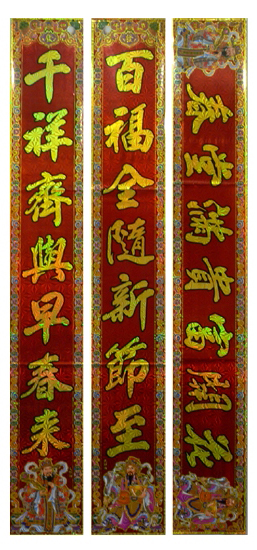 花開富貴滿堂春
百福全隨新節至
千祥齊與早春来